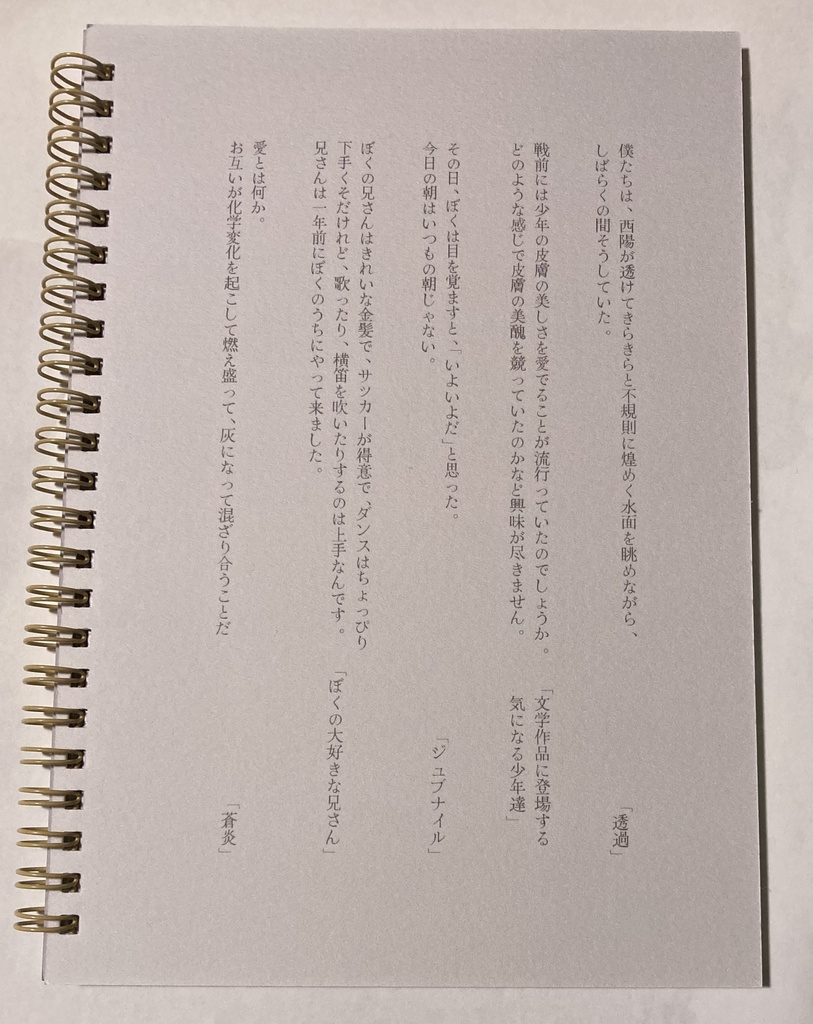 僕たちは、西陽が透けてきらきらと不規則に煌めく水面を眺めながら、
しばらくの間そうしていた。
「透過」
戦前には少年の皮膚の美しさを愛でることが流行っていたのでしょうか。
どのような感じで皮膚の美醜を競っていたのかなど興味が尽きません。
「文学作品に登場する
気になる少年達」
その日、ぼくは目を覚ますと、「いよいよだ」と思った。
今日の朝はいつもの朝じゃない。
「ジュブナイル」
ぼくの兄さんはきれいな金髪で、サッカーが得意で、ダンスはちょっぴり
下手くそだけれど、歌ったり、横笛を吹いたりするのは上手なんです。
兄さんは一年前にぼくのうちにやって来ました。
「ぼくの大好きな兄さん」
愛とは何か。
お互いが化学変化を起こして燃え盛って、灰になって混ざり合うことだ
「蒼炎」